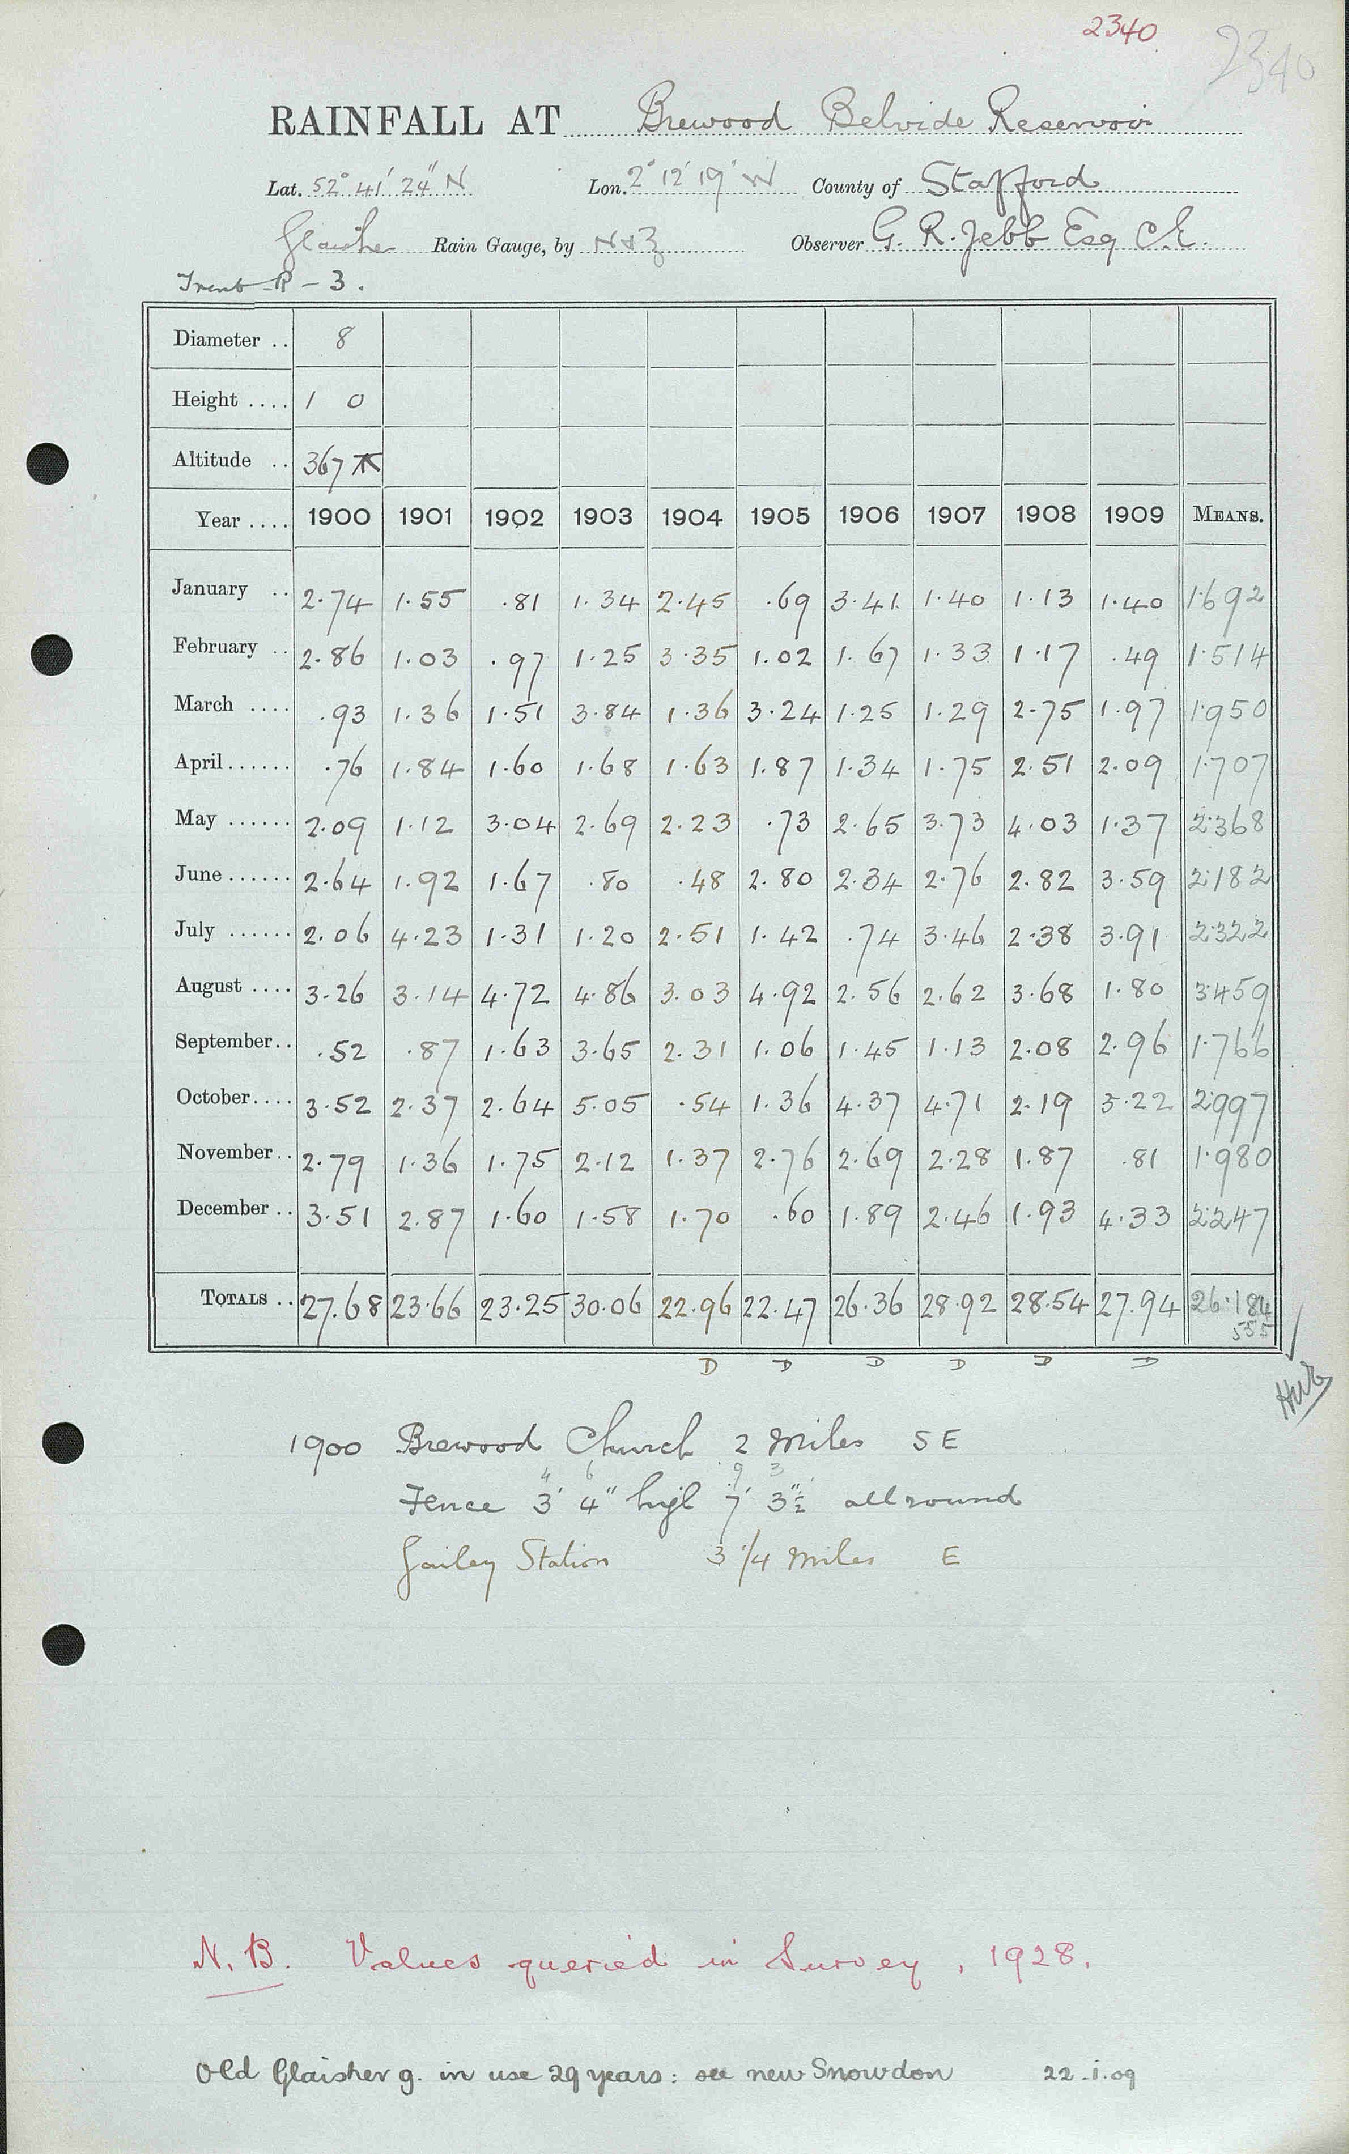 2340
2340
RAINFALL AT Brewood Belvide Reservoir
Lat. 52° 41' 24" N Lon. 2° 12' 19" W County of Stafford
Glaisher Rain Gauge, by N&Z Observer G. R. Jebb Esq C.E.
Trent R - 3.
Diameter .. 8
Height .... 1 0
Altitude .. 367
Year .... 1900 1901 1902 1903 1904 1905 1906 1907 1908 1909 MEANS.
January .. 2.74 1.55 .81 1.34 2.45 .69 3.41 1.40 1.13 1.40 1.692
February .. 2.86 1.03 .97 1.25 3.35 1.02 1.67 1.33 1.17 .49 1.514
March .... .93 1.36 1.51 3.84 1.36 3.24 1.25 1.29 2.75 1.97 1.950
April...... .76 1.84 1.60 1.68 1.63 1.87 1.34 1.75 2.51 2.09 1.707
May ...... 2.09 1.12 3.04 2.69 2.23 .73 2.65 3.73 4.03 1.37 2.368
June...... 2.64 1.92 1.67 .80 .48 2.80 2.34 2.76 2.82 3.59 2.182
July ...... 2.06 4.23 1.31 1.20 2.51 1.42 .74 3.46 2.38 3.91 2.322
August .... 3.26 3.14 4.72 4.86 3.03 4.92 2.56 2.62 3.68 1.80 3.459
September.. .52 .87 1.63 3.65 2.31 1.06 1.45 1.13 2.08 2.96 1.766
October.... 3.52 2.37 2.64 5.05 .54 1.36 4.37 4.71 2.19 3.22 2.997
November.. 2.79 1.36 1.75 2.12 1.37 2.76 2.69 2.28 1.87 .81 1.980
December .. 3.51 2.87 1.60 1.58 1.70 .60 1.89 2.46 1.93 4.33 2.247
TOTALS .. 27.68 23.66 23.25 30.06 22.96 22.47 26.36 28.92 28.54 27.94 26.184
555
D D D D D D
1900 Brewood Church 2 Miles SE
4 6 9 3
Fence 3' 4" high 7' 3½" all round
Gailey Station 3 1/4 Miles E
N.B. Values queried in Survey, 1928.
Old Glaisher g. in use 29 years: see new Snowdon 22.i.09